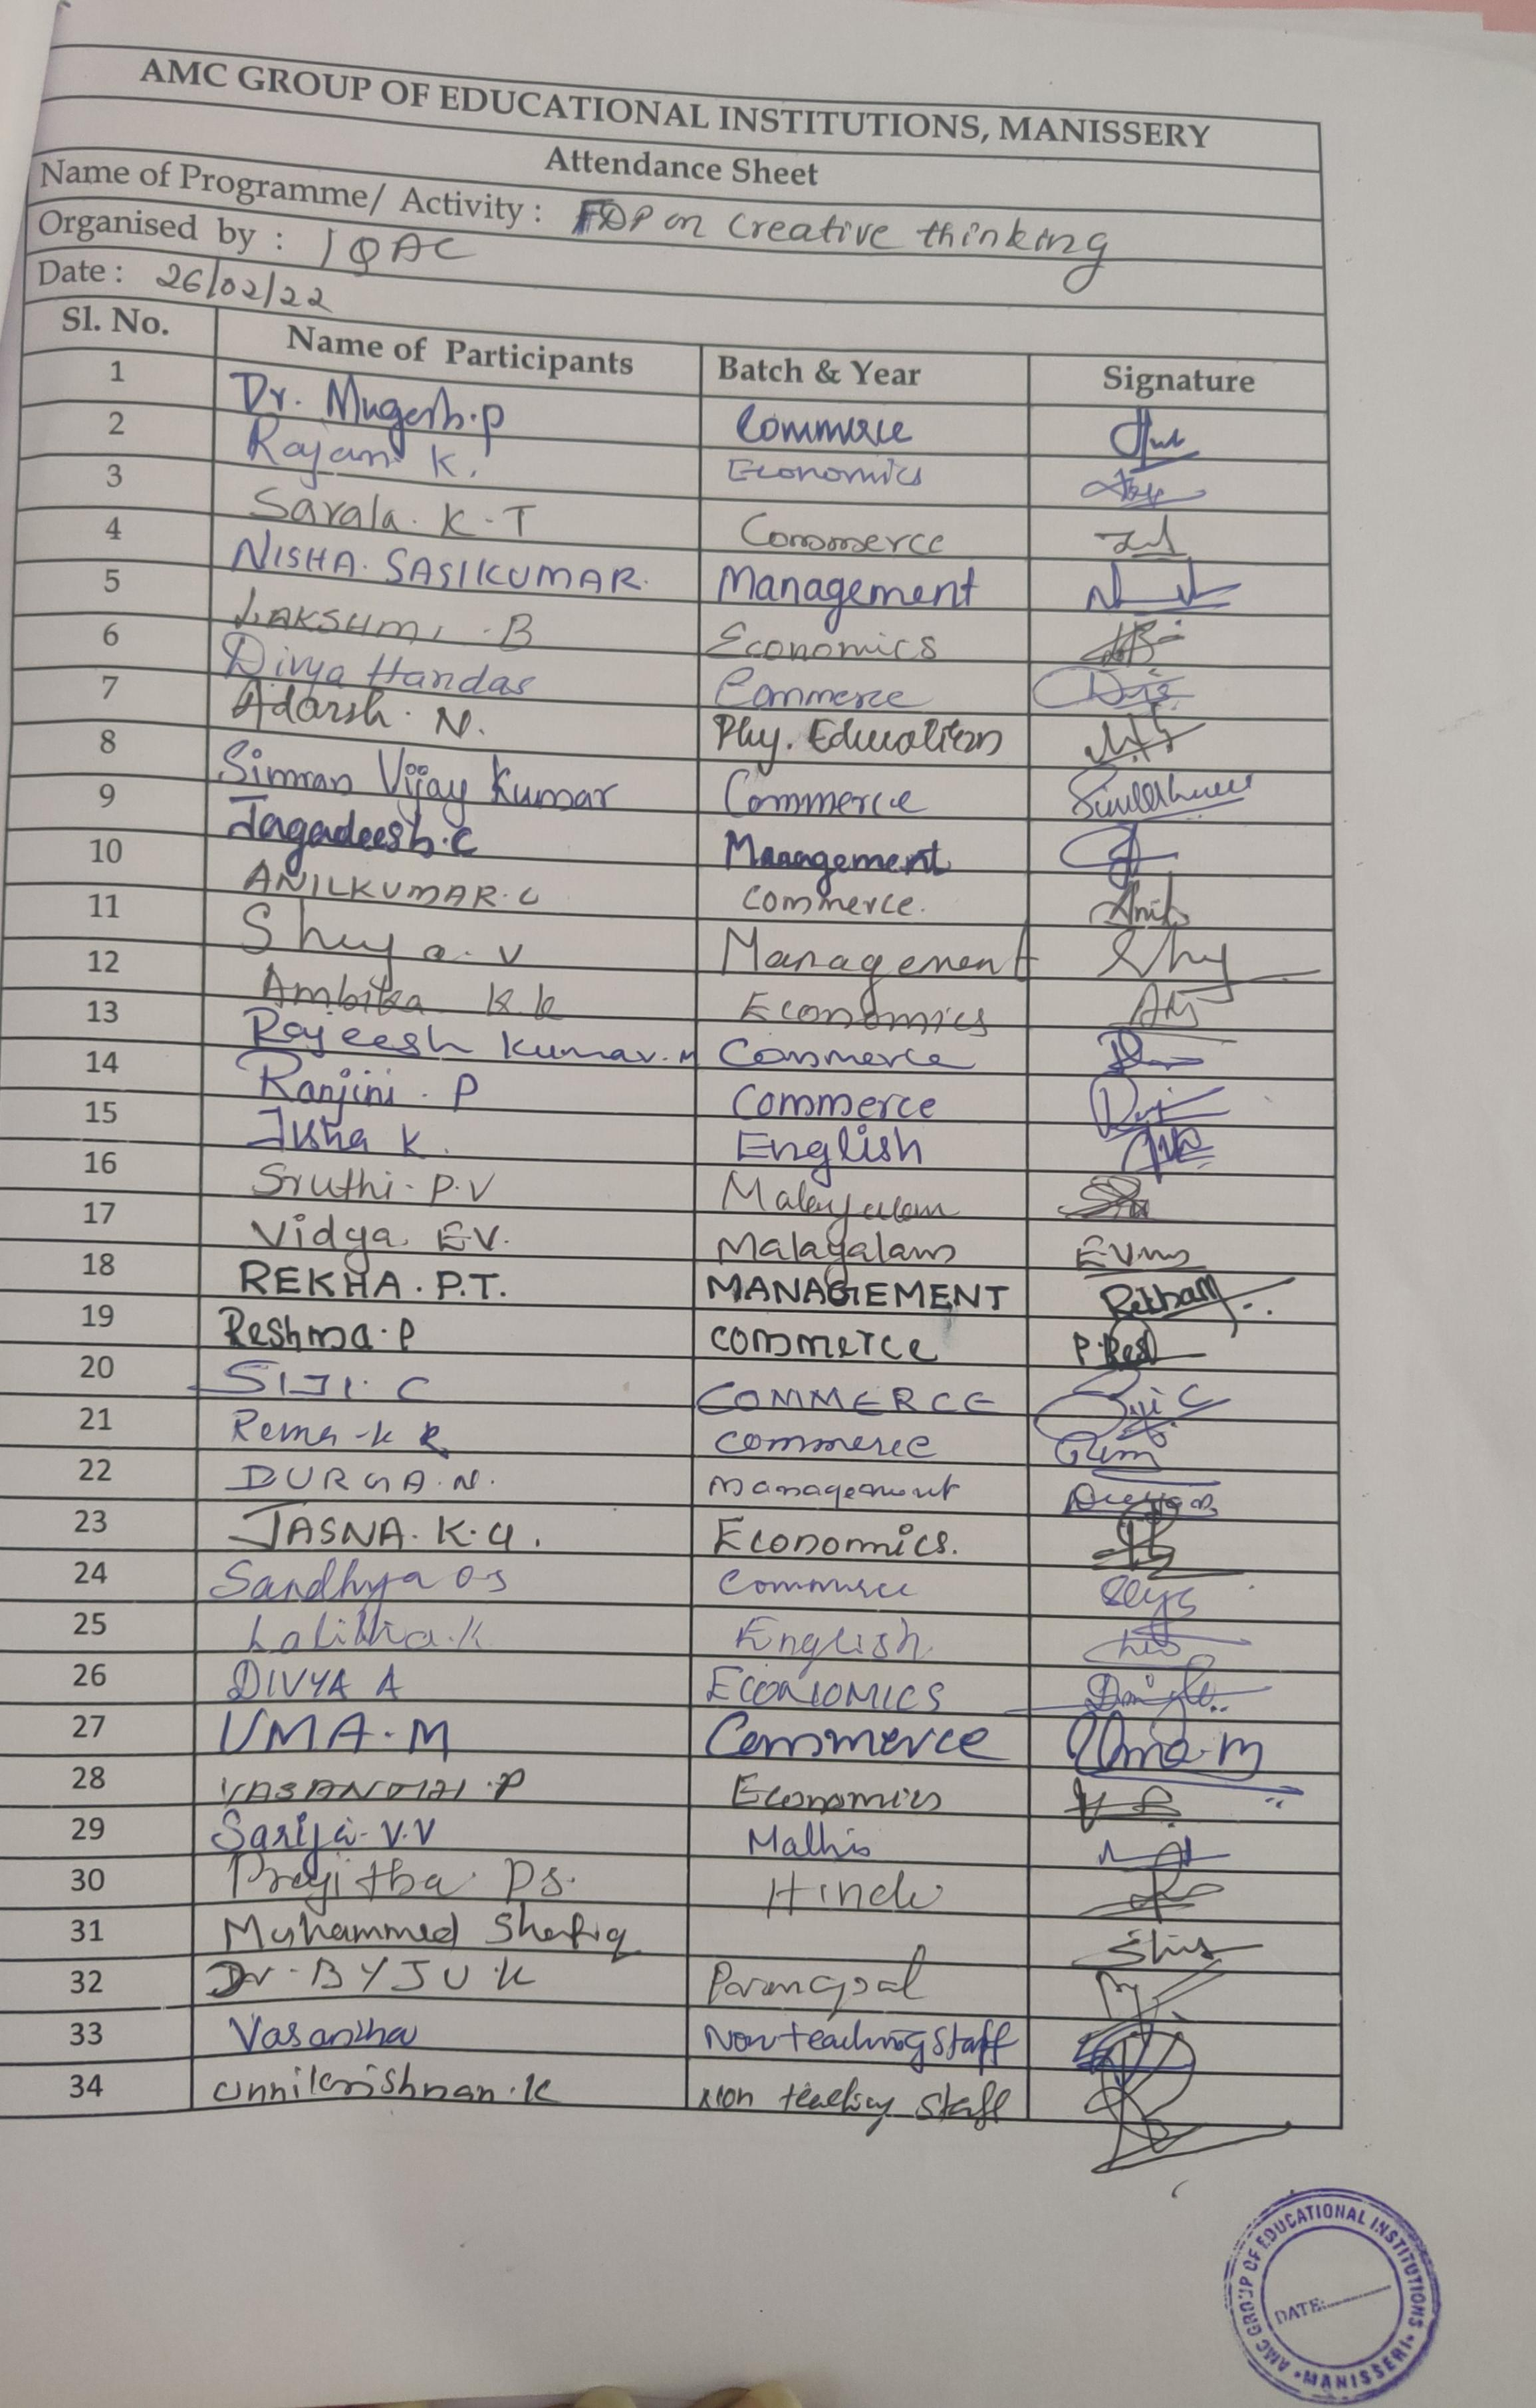 AMC GROUP OF EDUCATIONAL INSTITUTIONS, MANISSERY
Attendance Sheet
Name of Programme/ Activity : FDP on Creative thinking
Organised by : IQAC
Date : 26/02/22
Sl. No. Name of Participants Batch & Year Signature
1 Dr. Mugesh.P Commerce
2 Rajani K. Economics
3 Sarala. K.T Commerce
4 NISHA. SASIKUMAR. Management
5 LAKSHMI .B Economics
6 Divya Haridas Commerce
7 Adarsh. N. Phy. Education
8 Simran Vijay Kumar Commerce
9 Jagadeesh.C Management
10 ANILKUMAR.C Commerce.
11 V Management
12 Ambika K.K Economics
13 Rajeesh Kumar.M Commerce
14 Ranjini . P Commerce
15 K. English
16 Sruthi. P.V Malayalam
17 Vidya. E.V. Malayalam
18 REKHA . P.T. MANAGEMENT
19 Reshma.P commerce P.Res
20 SIJI. C COMMERCE Siji C
21 Rema-K R commerce Rem
22 DURGA.N. Management
23 JASNA. K.U. Economics.
24 Sandhya Commerce
25 Lalitha.K English
26 DIVYA A ECONOMICS
27 UMA.M Commerce Uma.m
28 .P Economics
29 V.V Maths
30 P.S. Hindi
31 Muhammed Shafiq
32 Dr. BYJU.K
33 Vasantha Non teaching staff
34 unnikrishnan.K Non teaching staff
AMC GROUP OF EDUCATIONAL INSTITUTIONS
MANISSERI
DATE: